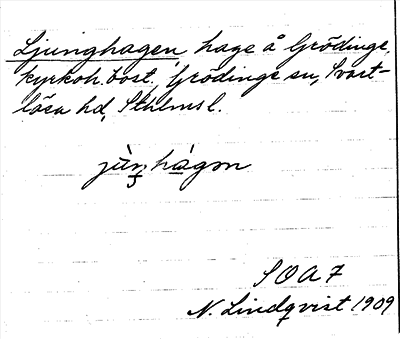 Ljunghagen, hage å Grödinge
kyrkoh. bost., Grödinge sn, Svart-
lösa hd, Sthlms l.
jùŋhágən
SOA7
N. Lindqvist 1909